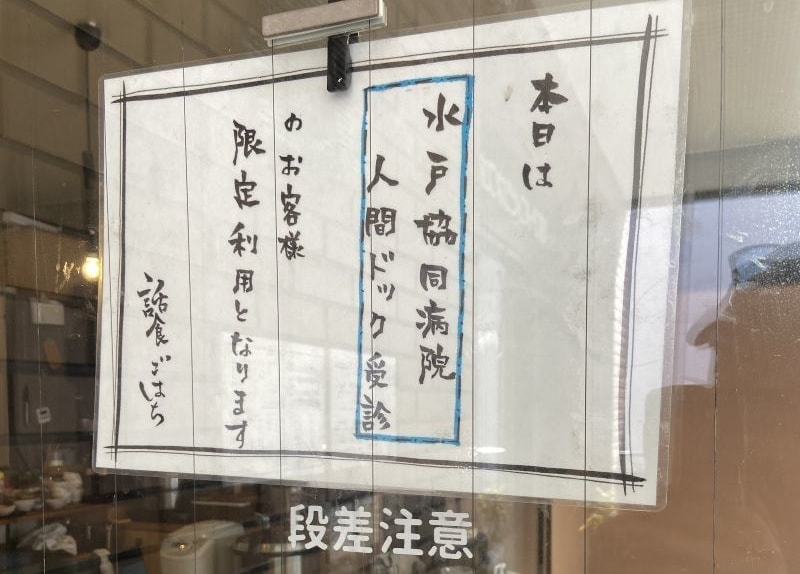 本日は
水戸協同病院
人間ドック受診
のお客様
限定利用となります
話食ごはち
段差注意